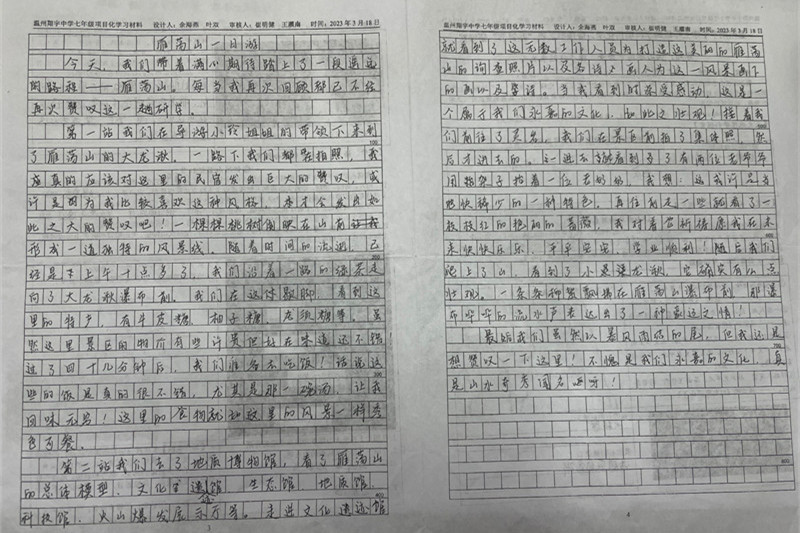 温州翔宇中学七年级项目化学习材料 设计人：余海燕 叶双 审核人：崔明健 王赢南 时间：2023年3月18日
雁荡山一日游
今天，我们带着满心期待踏上了一段遥远
的路程——雁荡山。每当我再次回顾都已不经
再次赞叹这一趟研学。
第一站我们在导游小玲姐姐的带领下来到
了雁荡山的大龙湫。一路下我们都是拍照，我
应真的应该对这里的民宿发出巨大的赞叹，或
许是因为我比较喜欢这种风格，才会发出如
此之大的赞叹吧！一棵棵桃树倒映在山前让我
形成一道独特的风景线。随着时间的流逝，已
经是下上午十点多了，我们沿着一路的
向了大龙湫瀑布前。我们在这休息，看到这
里的特产，有牛皮糖、柚子糖、龙须糖等。虽
然这里景区的物价有些计贵但好在味道还不错
过了四十几分钟后，我们准备去吃饭！话说这
些的饭是真的很不错，尤其是那一碗汤，让我
回味无穷！这里的食物就和这里的风景一样秀
色可餐。
第二站我们去了地质博物馆，看了雁荡山
的总体模型、文化遗迹馆、生态馆、地质馆、
科技馆、火山爆发展示厅等。走进文化遗迹馆
3
温州翔宇中学七年级项目化学习材料 设计人：余海燕 叶双 审核人：崔明健 王赢南 时间：2023年3月18日
就看到了这无数工作人员为打造这美丽的雁荡
山的调查照片以及名诗人画人为这一风景画下
的画以及墨语。当我看到时深受感动，这是一
个属于我们永嘉的文化，如此之壮观！接着我
们前往了灵岩。我们在景区前拍了集体照，然
后才进去的。一进去就看到了有两位老爷爷
用抬架子抬着一位老奶奶，我想：这或许是当
然快稀少的一种特色。再往前走一些就看了一
枝枝红的艳丽的蔷薇，我对着它祈祷愿我在未
来快快乐乐、平平安安、学业顺利！随后我们
爬上了山，看到了小龙湫，它确实有点
壮观。一条条柳絮飘扬在雁荡山瀑布前，那瀑
布哗哗的流水声表达出了一种豪迈之情！
最后我们虽然以暴风雨结的尾，但我还是
想赞叹一下这里！不愧是我们永嘉的文化，真
是山水奇秀闻名
4